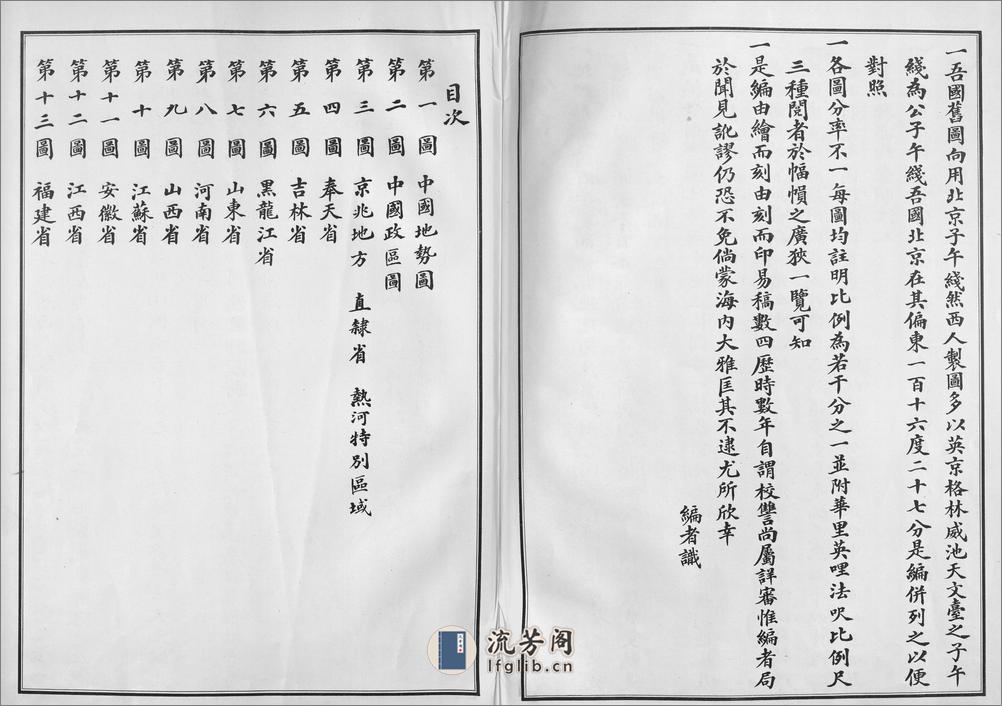 一吾國舊圖向用北京子午綫然西人製圖多以英京格林威池天文臺之子午
綫為公子午綫吾國北京在其偏東一百十六度二十七分是編併列之以便
對照
一各圖分率不一每圖均註明比例為若干分之一並附華里英哩法呎比例尺
三種閱者於幅幀之廣狹一覽可知
一是編由繪而刻由刻而印易稿數四歷時數年自謂校讐尚屬詳審惟編者局
於聞見訛謬仍恐不免倘蒙海內大雅匡其不逮尤所欣幸
編者識
目次
第一圖 中國地勢圖
第二圖 中國政區圖
第三圖 京兆地方 直隸省 熱河特別區域
第四圖 奉天省
第五圖 吉林省
第六圖 黑龍江省
第七圖 山東省
第八圖 河南省
第九圖 山西省
第十圖 江蘇省
第十一圖 安徽省
第十二圖 江西省
第十三圖 福建省
流芳阁
lfglib.cn